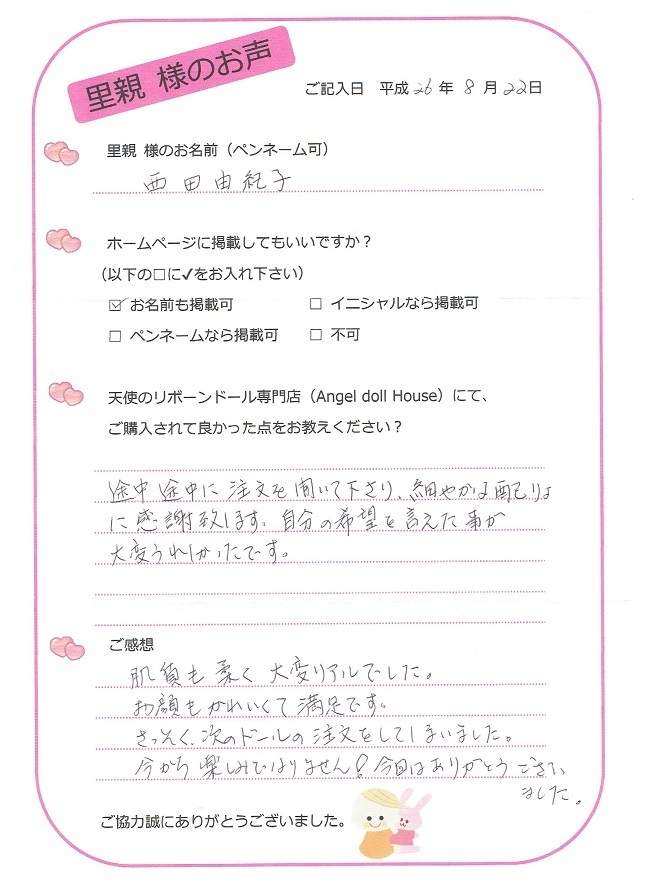 里親 様のお声
ご記入日 平成26年8月22日
里親 様のお名前（ペンネーム可）
西田由紀子
ホームページに掲載してもいいですか？
（以下の□に✔をお入れ下さい）
☑ お名前も掲載可 □ イニシャルなら掲載可
□ ペンネームなら掲載可 □ 不可
天使のリボーンドール専門店（Angel doll House）にて、
ご購入されて良かった点をお教えください？
途中途中に注文を聞いて下さり、細やかな配りょ
に感謝致します。自分の希望を言えた事が
大変うれしかったです。
ご感想
肌質も柔く大変リアルでした。
お顔もかわいくて満足です。
さっそく、次のドールの注文をしてしまいました。
今から楽しみでなりません！今回はありがとうござい
ました。
ご協力誠にありがとうございました。